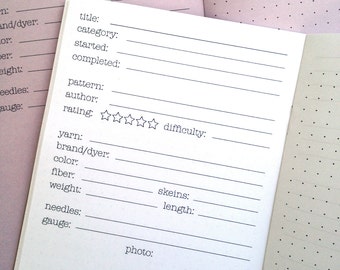 title:
category:
started:
completed:
pattern:
author:
rating: difficulty:
yarn:
brand/dyer:
color:
fiber: skeins:
weight: length:
needles:
gauge:
photo:
yarn:
brand/dyer:
color:
fiber:
weight:
needles:
gauge: